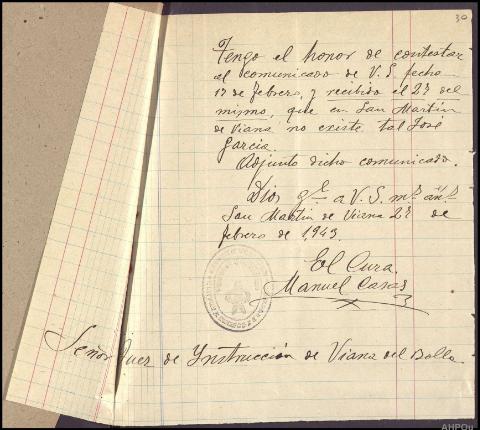 30
Tengo el honor de contestar
al comunicado de V. S. fecha
17 de febrero, y recibido el 27 del
mismo, que en San Martín
de Viana no existe tal José
García.
Adjunto dicho comunicado.
Dios g.e a V. S. m.s añ.s
San Martín de Viana 27 de
febrero de 1943.
El Cura.
Manuel Casas
Señor Juez de Ynstrucción de Viana del Bollo
AHPOu